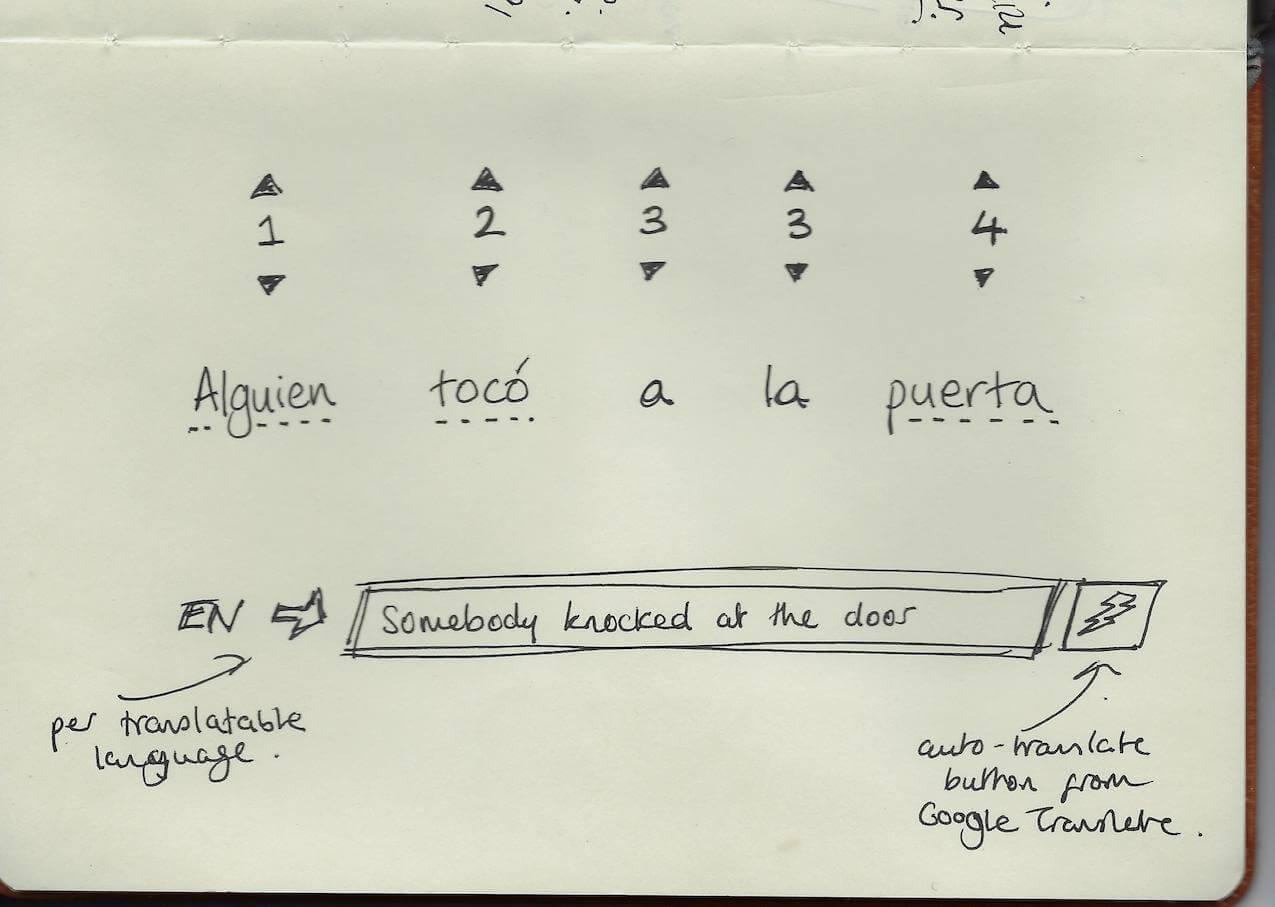 1 2 3 3 4
Alguien tocó a la puerta
EN Somebody knocked at the door
per translatable
language.
auto-translate
button from
Google Translate.